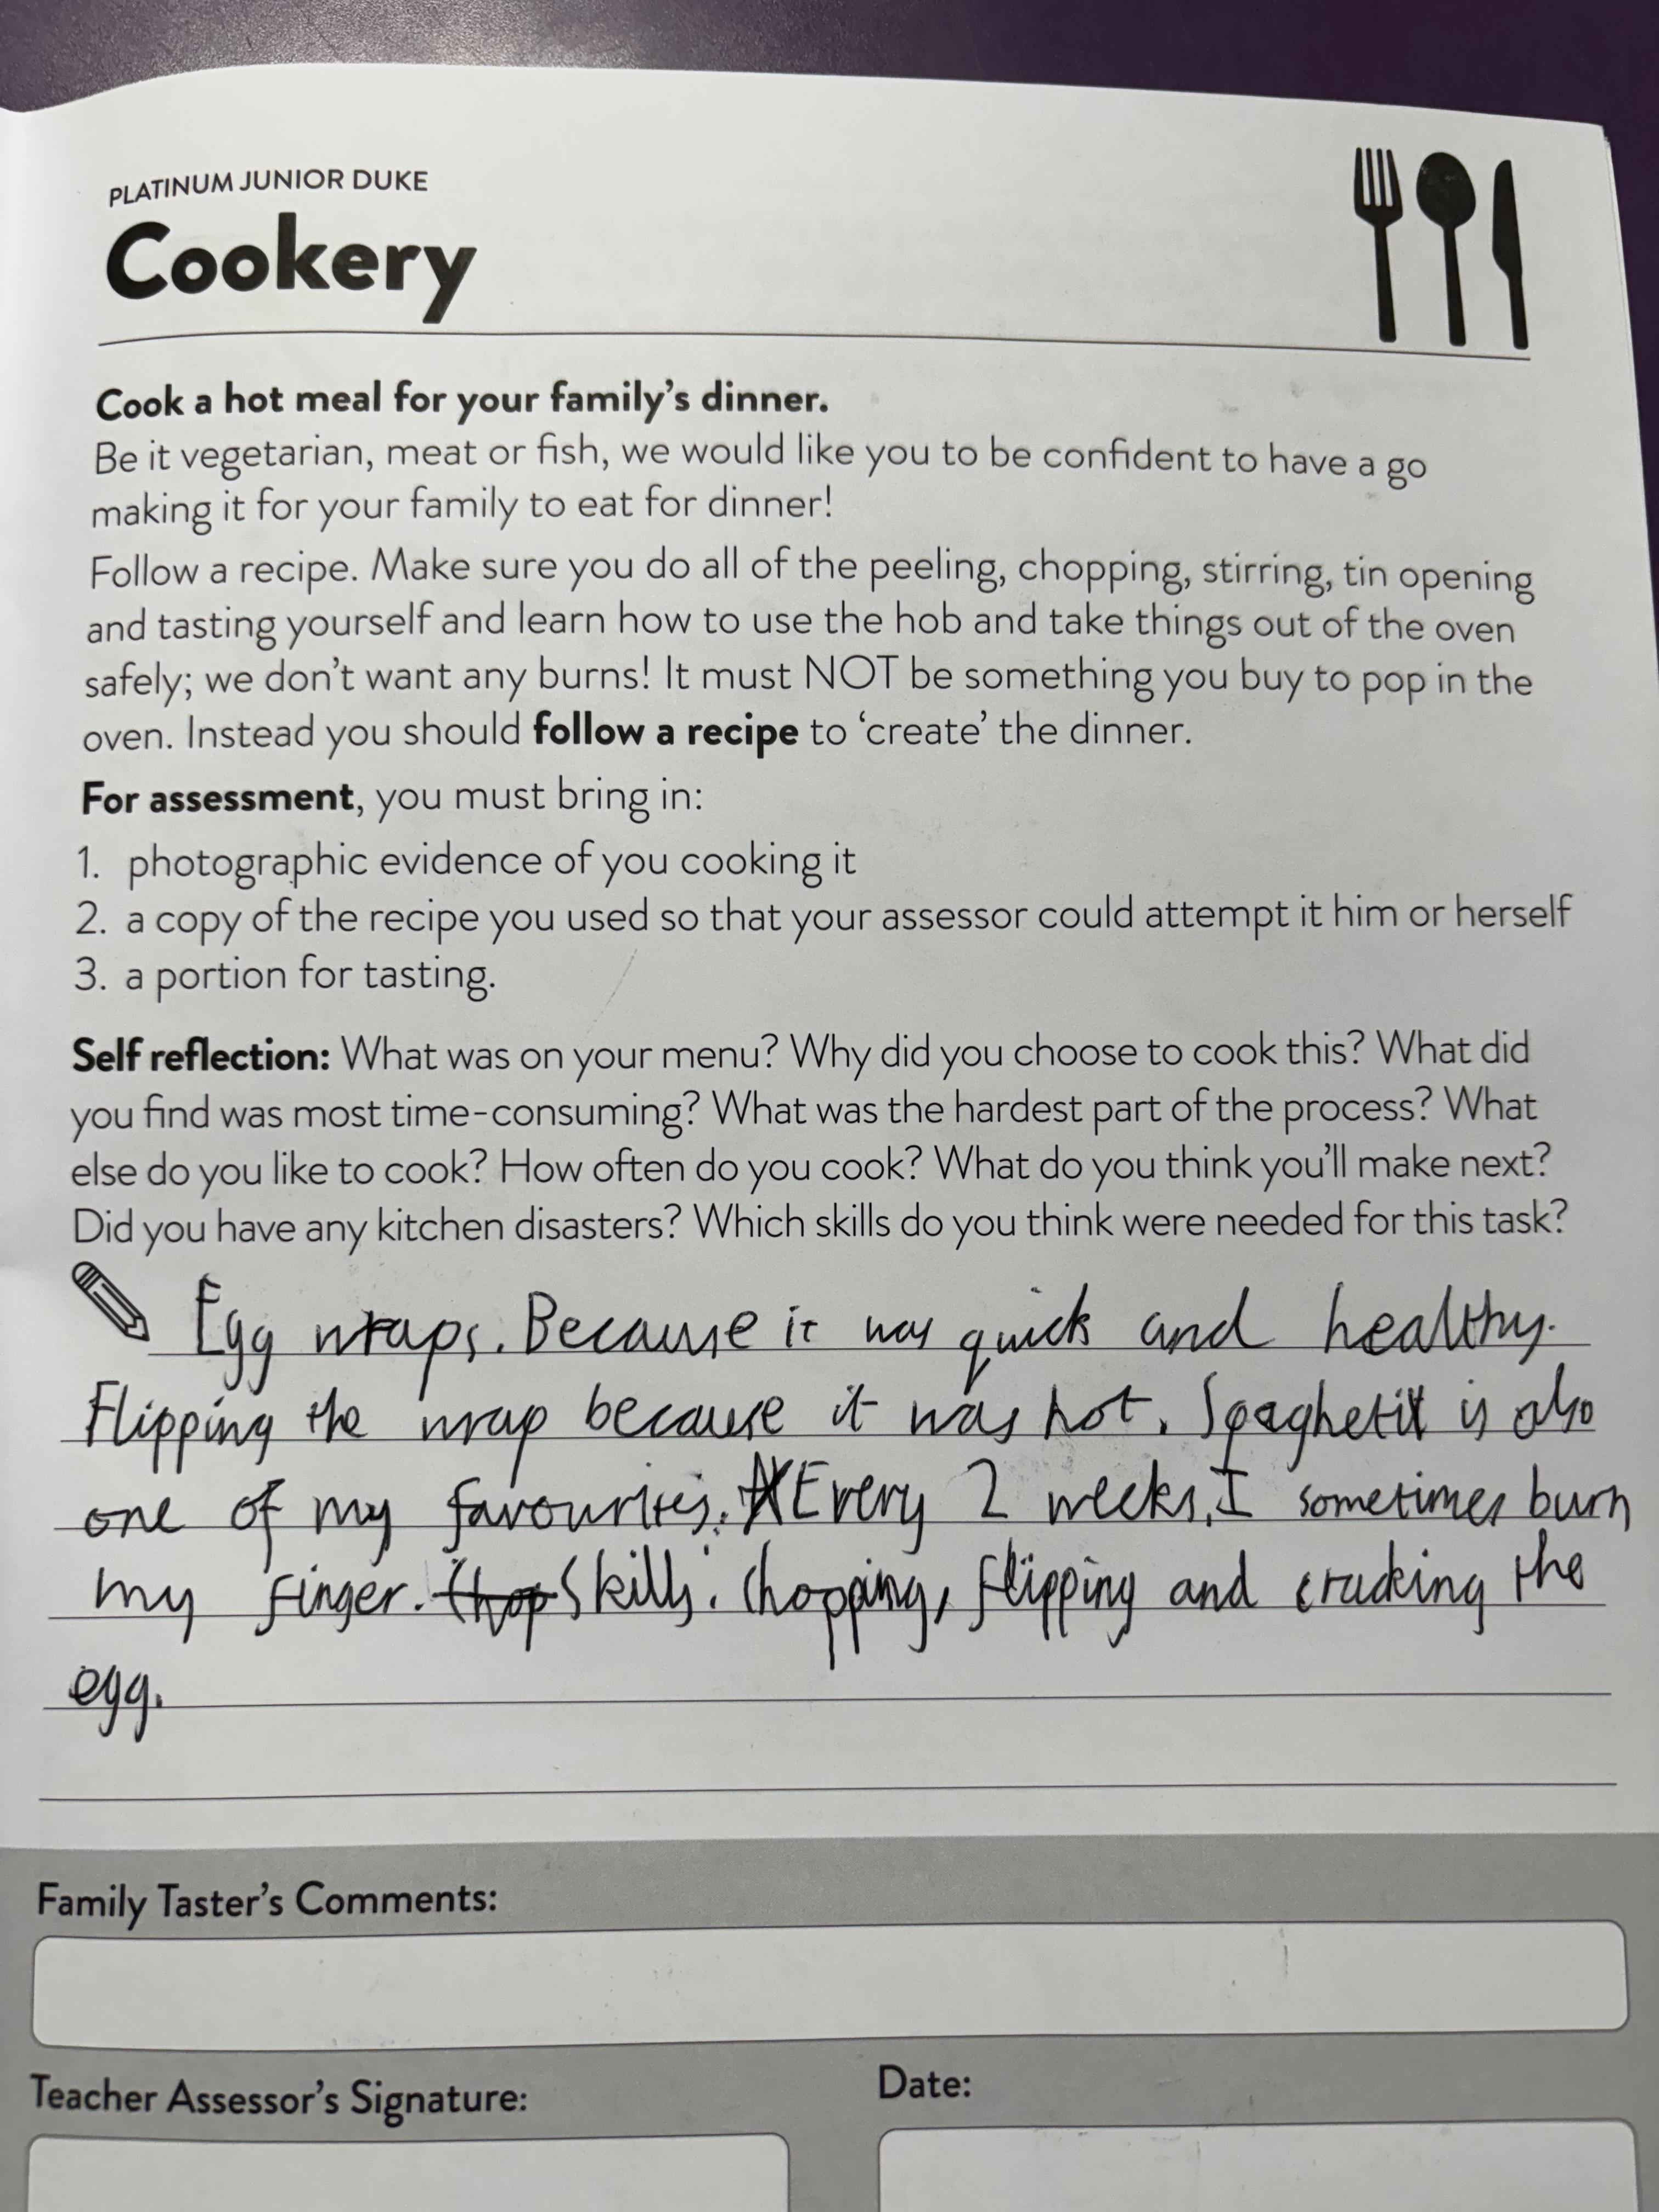 PLATINUM JUNIOR DUKE
Cookery
Cook a hot meal for your family's dinner.
Be it vegetarian, meat or fish, we would like you to be confident to have a go
making it for your family to eat for dinner!
Follow a recipe. Make sure you do all of the peeling, chopping, stirring, tin opening
and tasting yourself and learn how to use the hob and take things out of the oven
safely; we don't want any burns! It must NOT be something you buy to pop in the
oven. Instead you should follow a recipe to 'create' the dinner.
For assessment, you must bring in:
1. photographic evidence of you cooking it
2. a copy of the recipe you used so that your assessor could attempt it him or herself
3. a portion for tasting.
Self reflection: What was on your menu? Why did you choose to cook this? What did
you find was most time-consuming? What was the hardest part of the process? What
else do you like to cook? How often do you cook? What do you think you'll make next?
Did you have any kitchen disasters? Which skills do you think were needed for this task?
Egg wraps. Because it was quick and healthy.
Flipping the wrap because it was hot. Spaghetti is also
one of my favourites. Every 2 weeks. I sometimes burn
my finger. Chop Skills: Chopping, flipping and cracking the
egg.
Family Taster's Comments:
Teacher Assessor's Signature:
Date: